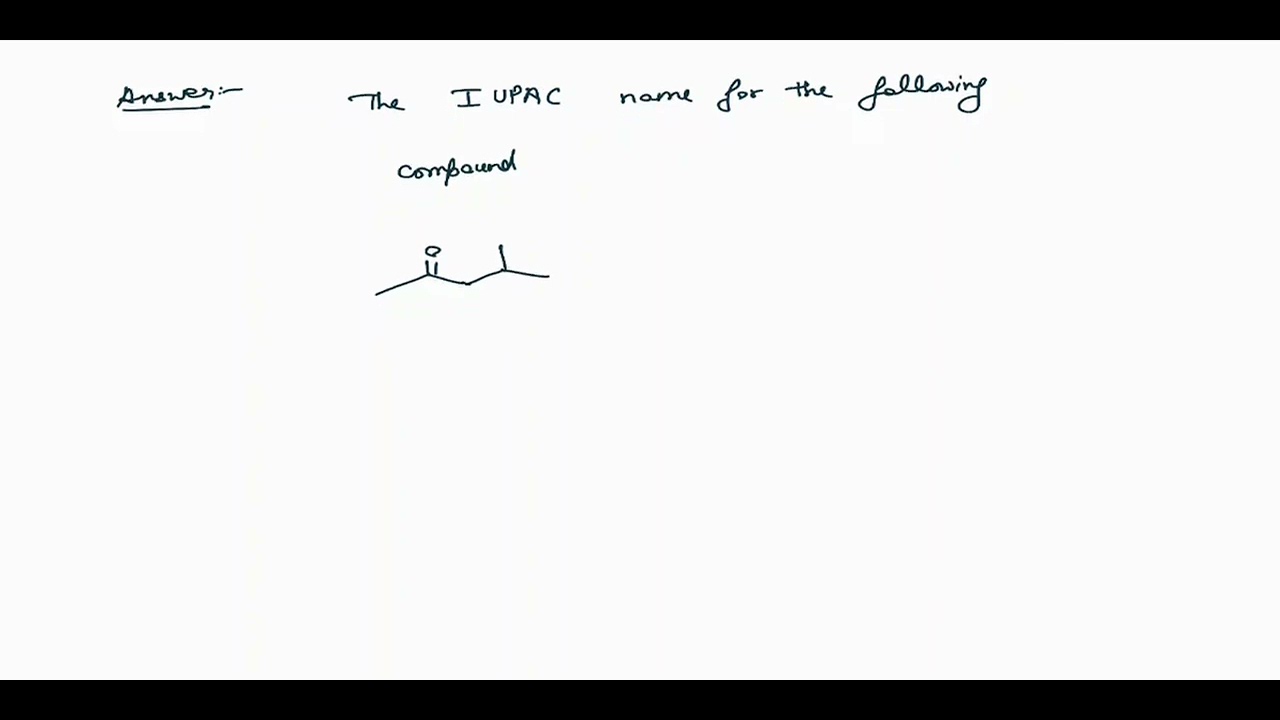 Answer:- The IUPAC name for the following
compound
O